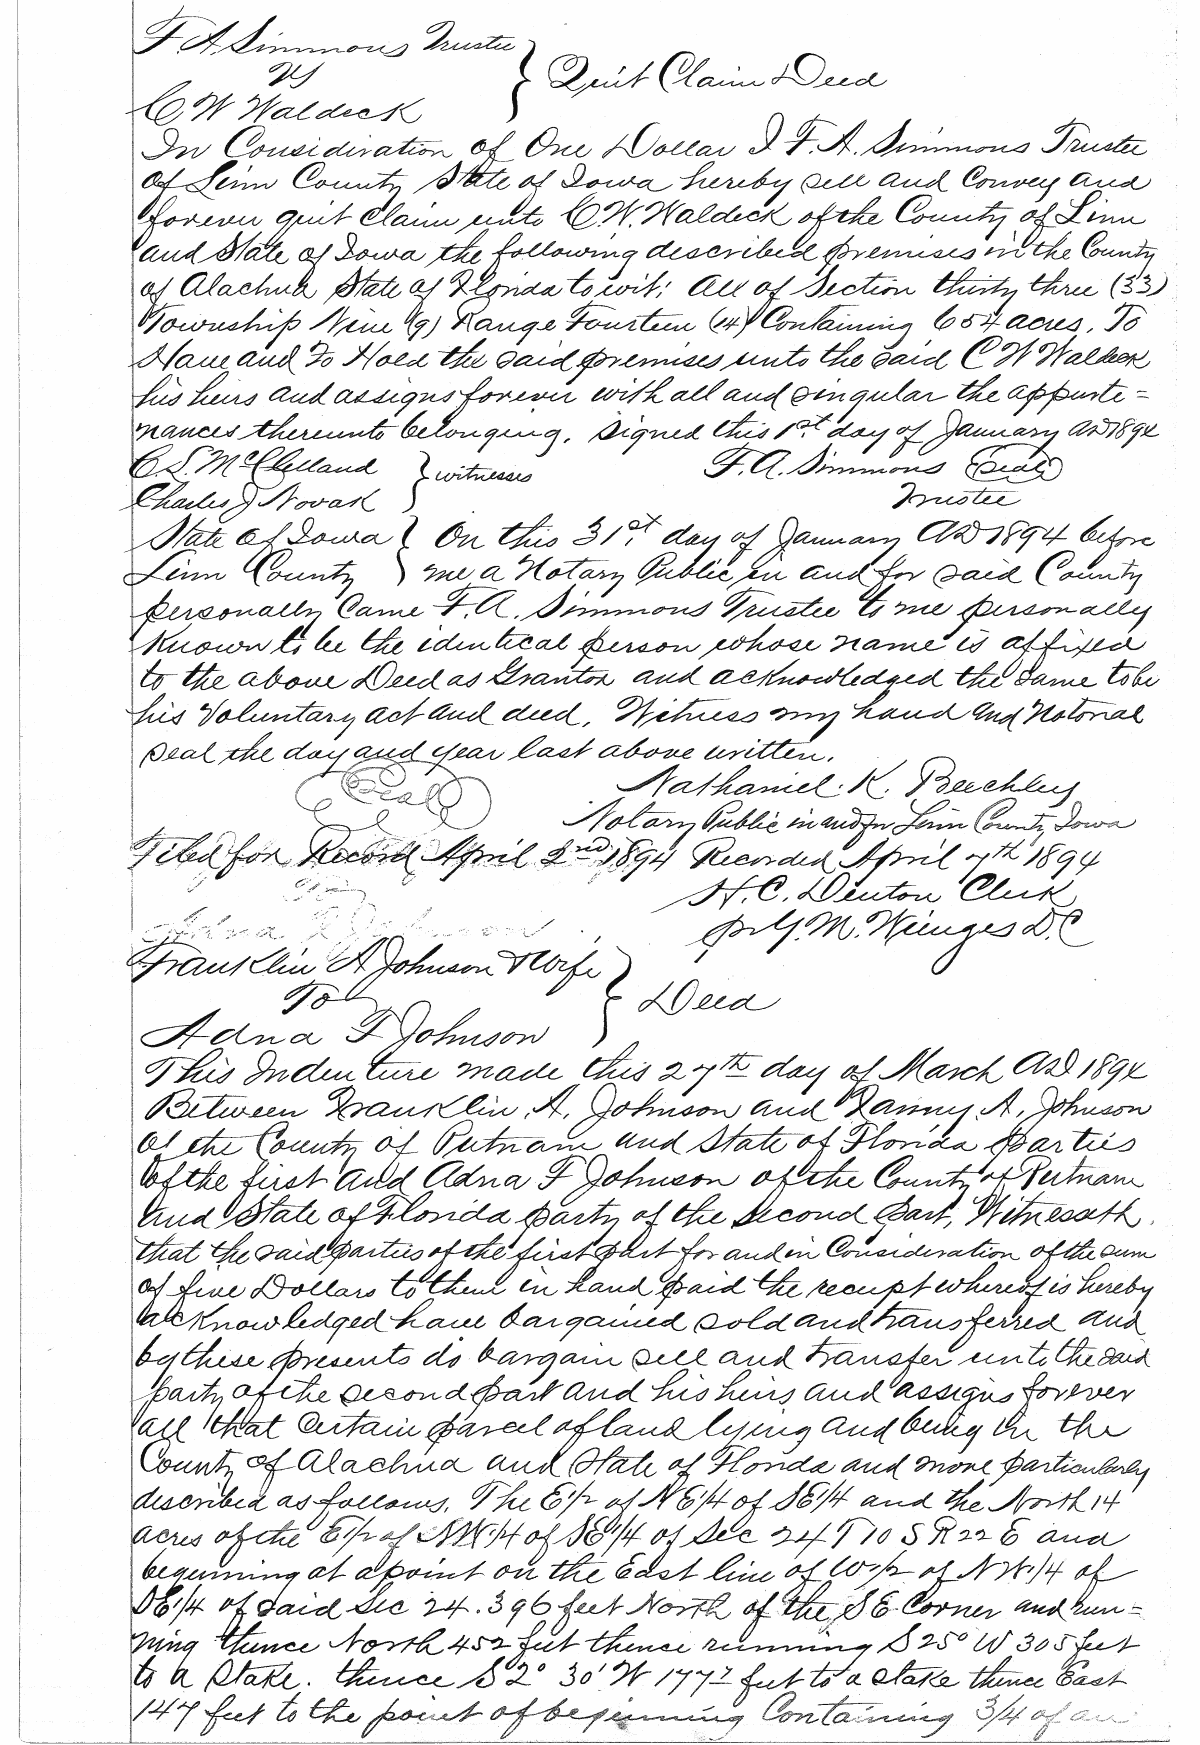 F. A. Simmons Trustee
To
C W Waldeck
} Quit Claim Deed
In Consideration of One Dollar I F. A. Simmons Trustee
of Linn County State of Iowa hereby sell and Convey and
forever quit Claim unto C. W. Waldeck of the County of Linn
and State of Iowa the following described premises in the County
of Alachua State of Florida to wit; All of Section thirty three (33)
Township Nine (9) Range Fourteen (14) Containing 654 acres. To
Have and To Hold the said premises unto the said C W Waldeck
his heirs and assigns forever with all and singular the appurte=
nances thereunto belonging. Signed this 1st day of January AD 1894
C. S. McClelland } witnesses F. A. Simmons (Seal)
Charles J Novak Trustee
State of Iowa } On this 31st day of January AD 1894 before
Linn County } me a Notary Public in and for said County
personally Came F. A. Simmons Trustee to me personally
Known to be the identical person whose name is affixed
to the above Deed as Grantor and acknowledged the same to be
his Voluntary act and deed. Witness my hand and Notorial
seal the day and year last above written.
(Seal) Nathaniel. K. Beechley
Notary Public in and for Linn County Iowa
Filed for Record April 2nd 1894 Recorded April 7th 1894
H. C. Denton Clerk
D.C
Adna F Johnson
Franklin A Johnson & Wife
To
Adna F Johnson
} Deed
This Indenture made this 27th day of March AD 1894
Between Franklin. A. Johnson and Fanny. A. Johnson
of the County of Putnam and State of Florida parties
of the first and Adna F Johnson of the County of Putnam
and State of Florida party of the second part, Witnesseth.
that the said parties of the first part for and in Consideration of the sum
of five Dollars to them in hand paid the receipt whereof is hereby
acknowledged have bargained sold and transferred and
by these presents do bargain sell and transfer unto the said
party of the second part and his heirs and assigns forever
all that Certain parcel of land lying and being in the
County of Alachua and State of Florida and more particularly
described as follows. The E 1/2 of NE 1/4 of SE 1/4 and the North 14
acres of the E 1/2 of NW 1/4 of SE 1/4 of Sec 24 T 10 S R 22 E and
beginning at a point on the East line of W 1/2 of NW 1/4 of
SE 1/4 of said Sec 24. 396 feet North of the SE Corner and run=
ning thence North 452 feet thence running S 25° W 305 feet
to a Stake. thence S 2° 30' W 177 feet to a stake thence East
147 feet to the point of beginning Containing 3/4 of an